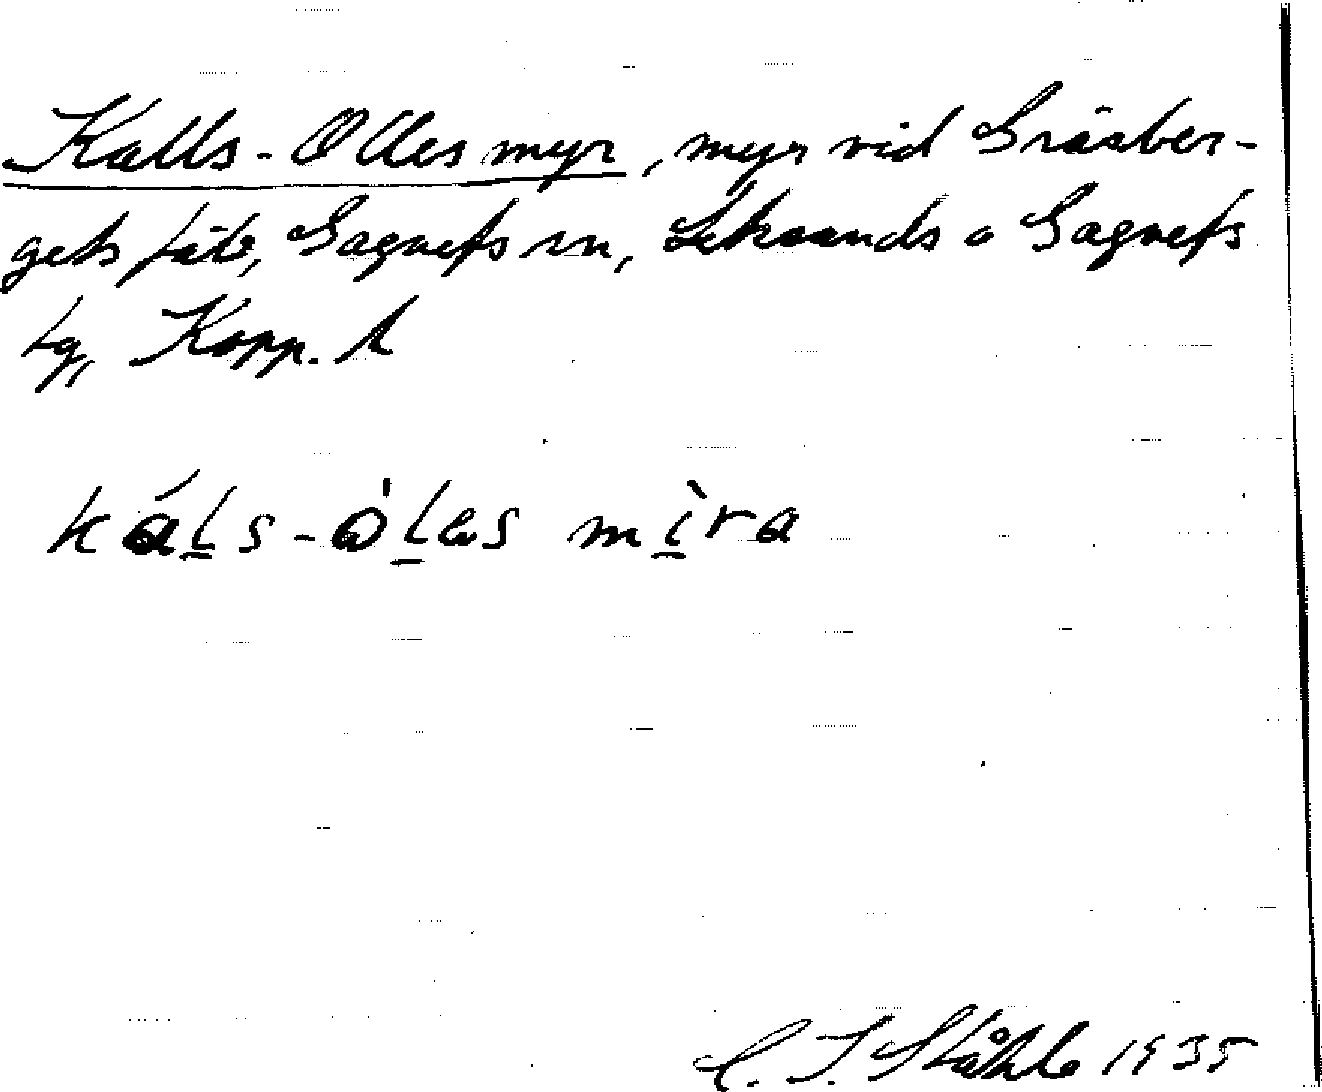 Kalls-Olles myr, myr vid Gräsber-
gets fäb, Gagnefs sn, Leksands o Gagnefs
tg, Kopp. l
káls-òles mìra
C. I. Ståhle 1935